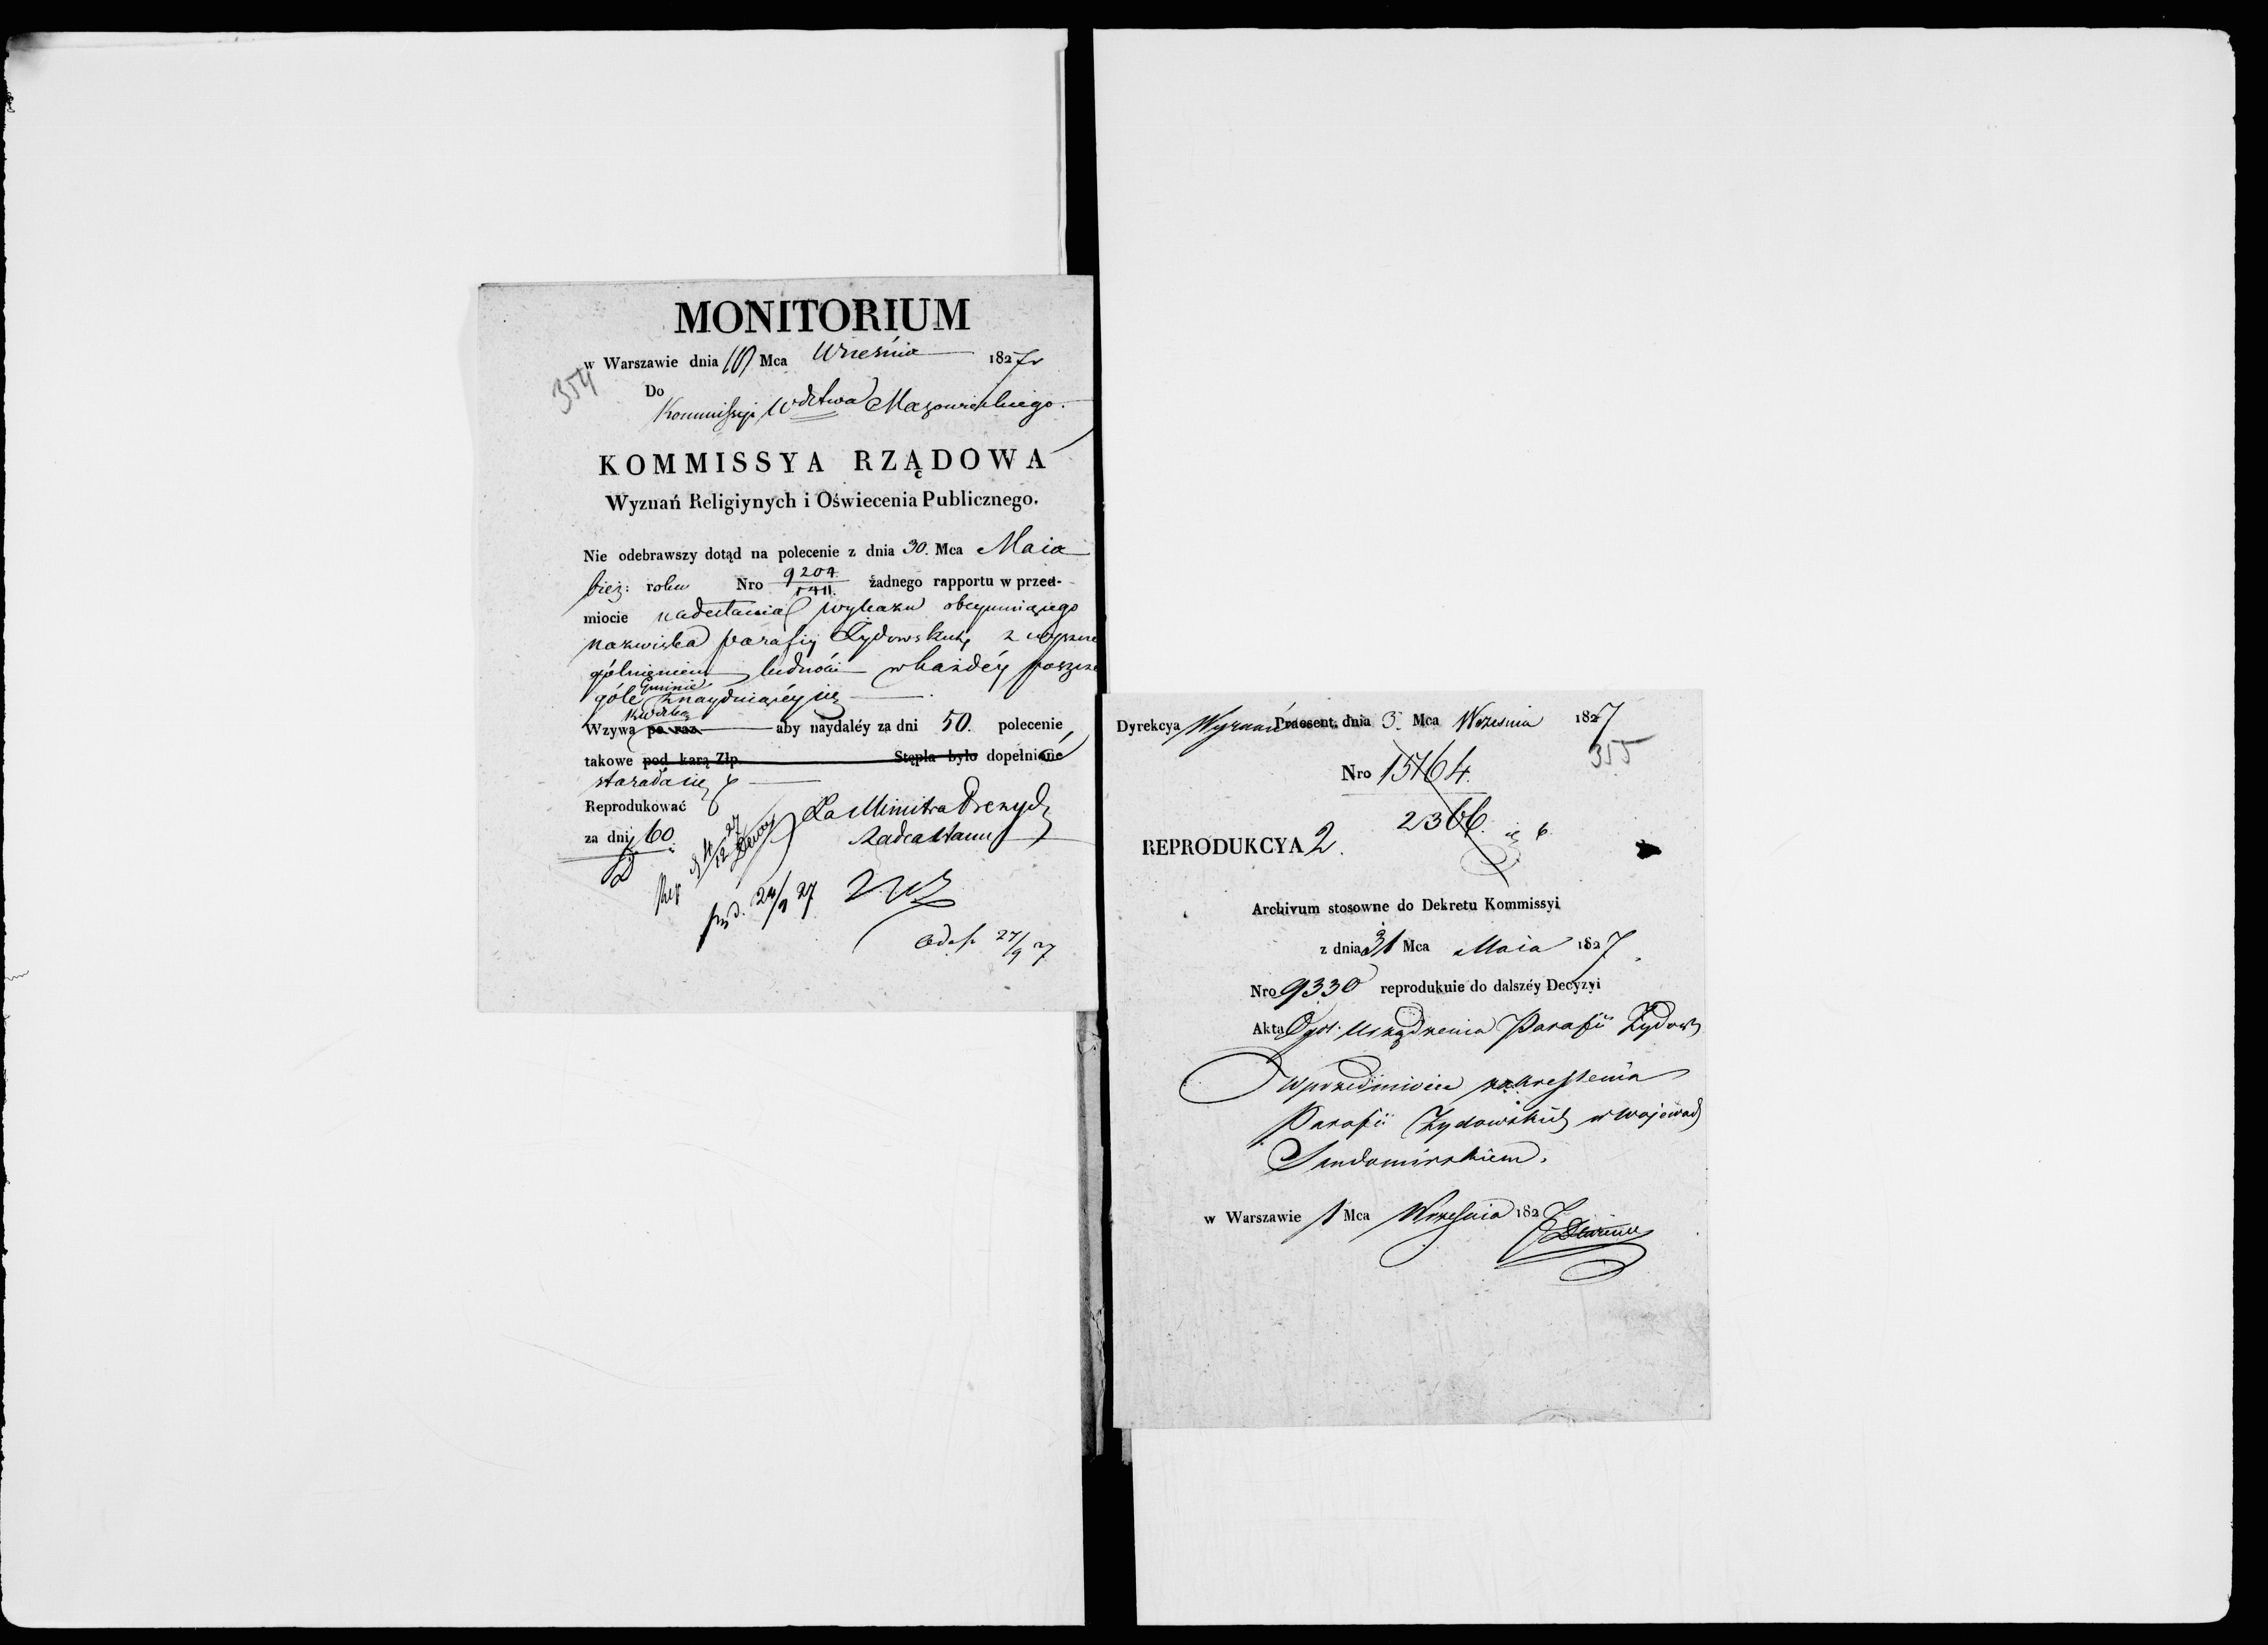 MONITORIUM
w Warszawie dnia 10 Mca Września 1827r
354
Do
Kommissyi Wdztwa Mazowieckiego.
KOMMISSYA RZĄDOWA
Wyznań Religiynych i Oświecenia Publicznego.
Nie odebrawszy dotąd na polecenie z dnia 30. Mca Maia
bież: roku Nro 9204 żadnego rapportu w przed-
miocie nadesłania wykazu obeymuiącego
nazwiska parafiy Żydowskich z wyszcze
gólnieniem ludności w każdéy poszcze
góle Gminie znayduiącéy się
Wzywa po raz aby naydaléy za dni 50. polecenie
takowe pod karą Złp. Stępla było dopełnioné
starała się
Reprodukować
za dni 60.
Za Ministra Prezyd
Radca Stanu
24/9 27
27/9 27
Dyrekcya Wyznań Praesent. dnia 3. Mca Września 1827
355
Nro 15764.
2366.
REPRODUKCYA 2.
Archivum stosowne do Dekretu Kommissyi
z dnia 31 Mca Maia 1827
Nro 9330 reprodukuie do dalszéy Decyzyi
Akta Ogól. Urządzenia Parafii Żydows
w przedmiocie zakreślenia
Parafii Żydowskich w Wojewod
Sandomirskiem.
w Warszawie 1 Mca Września 1827